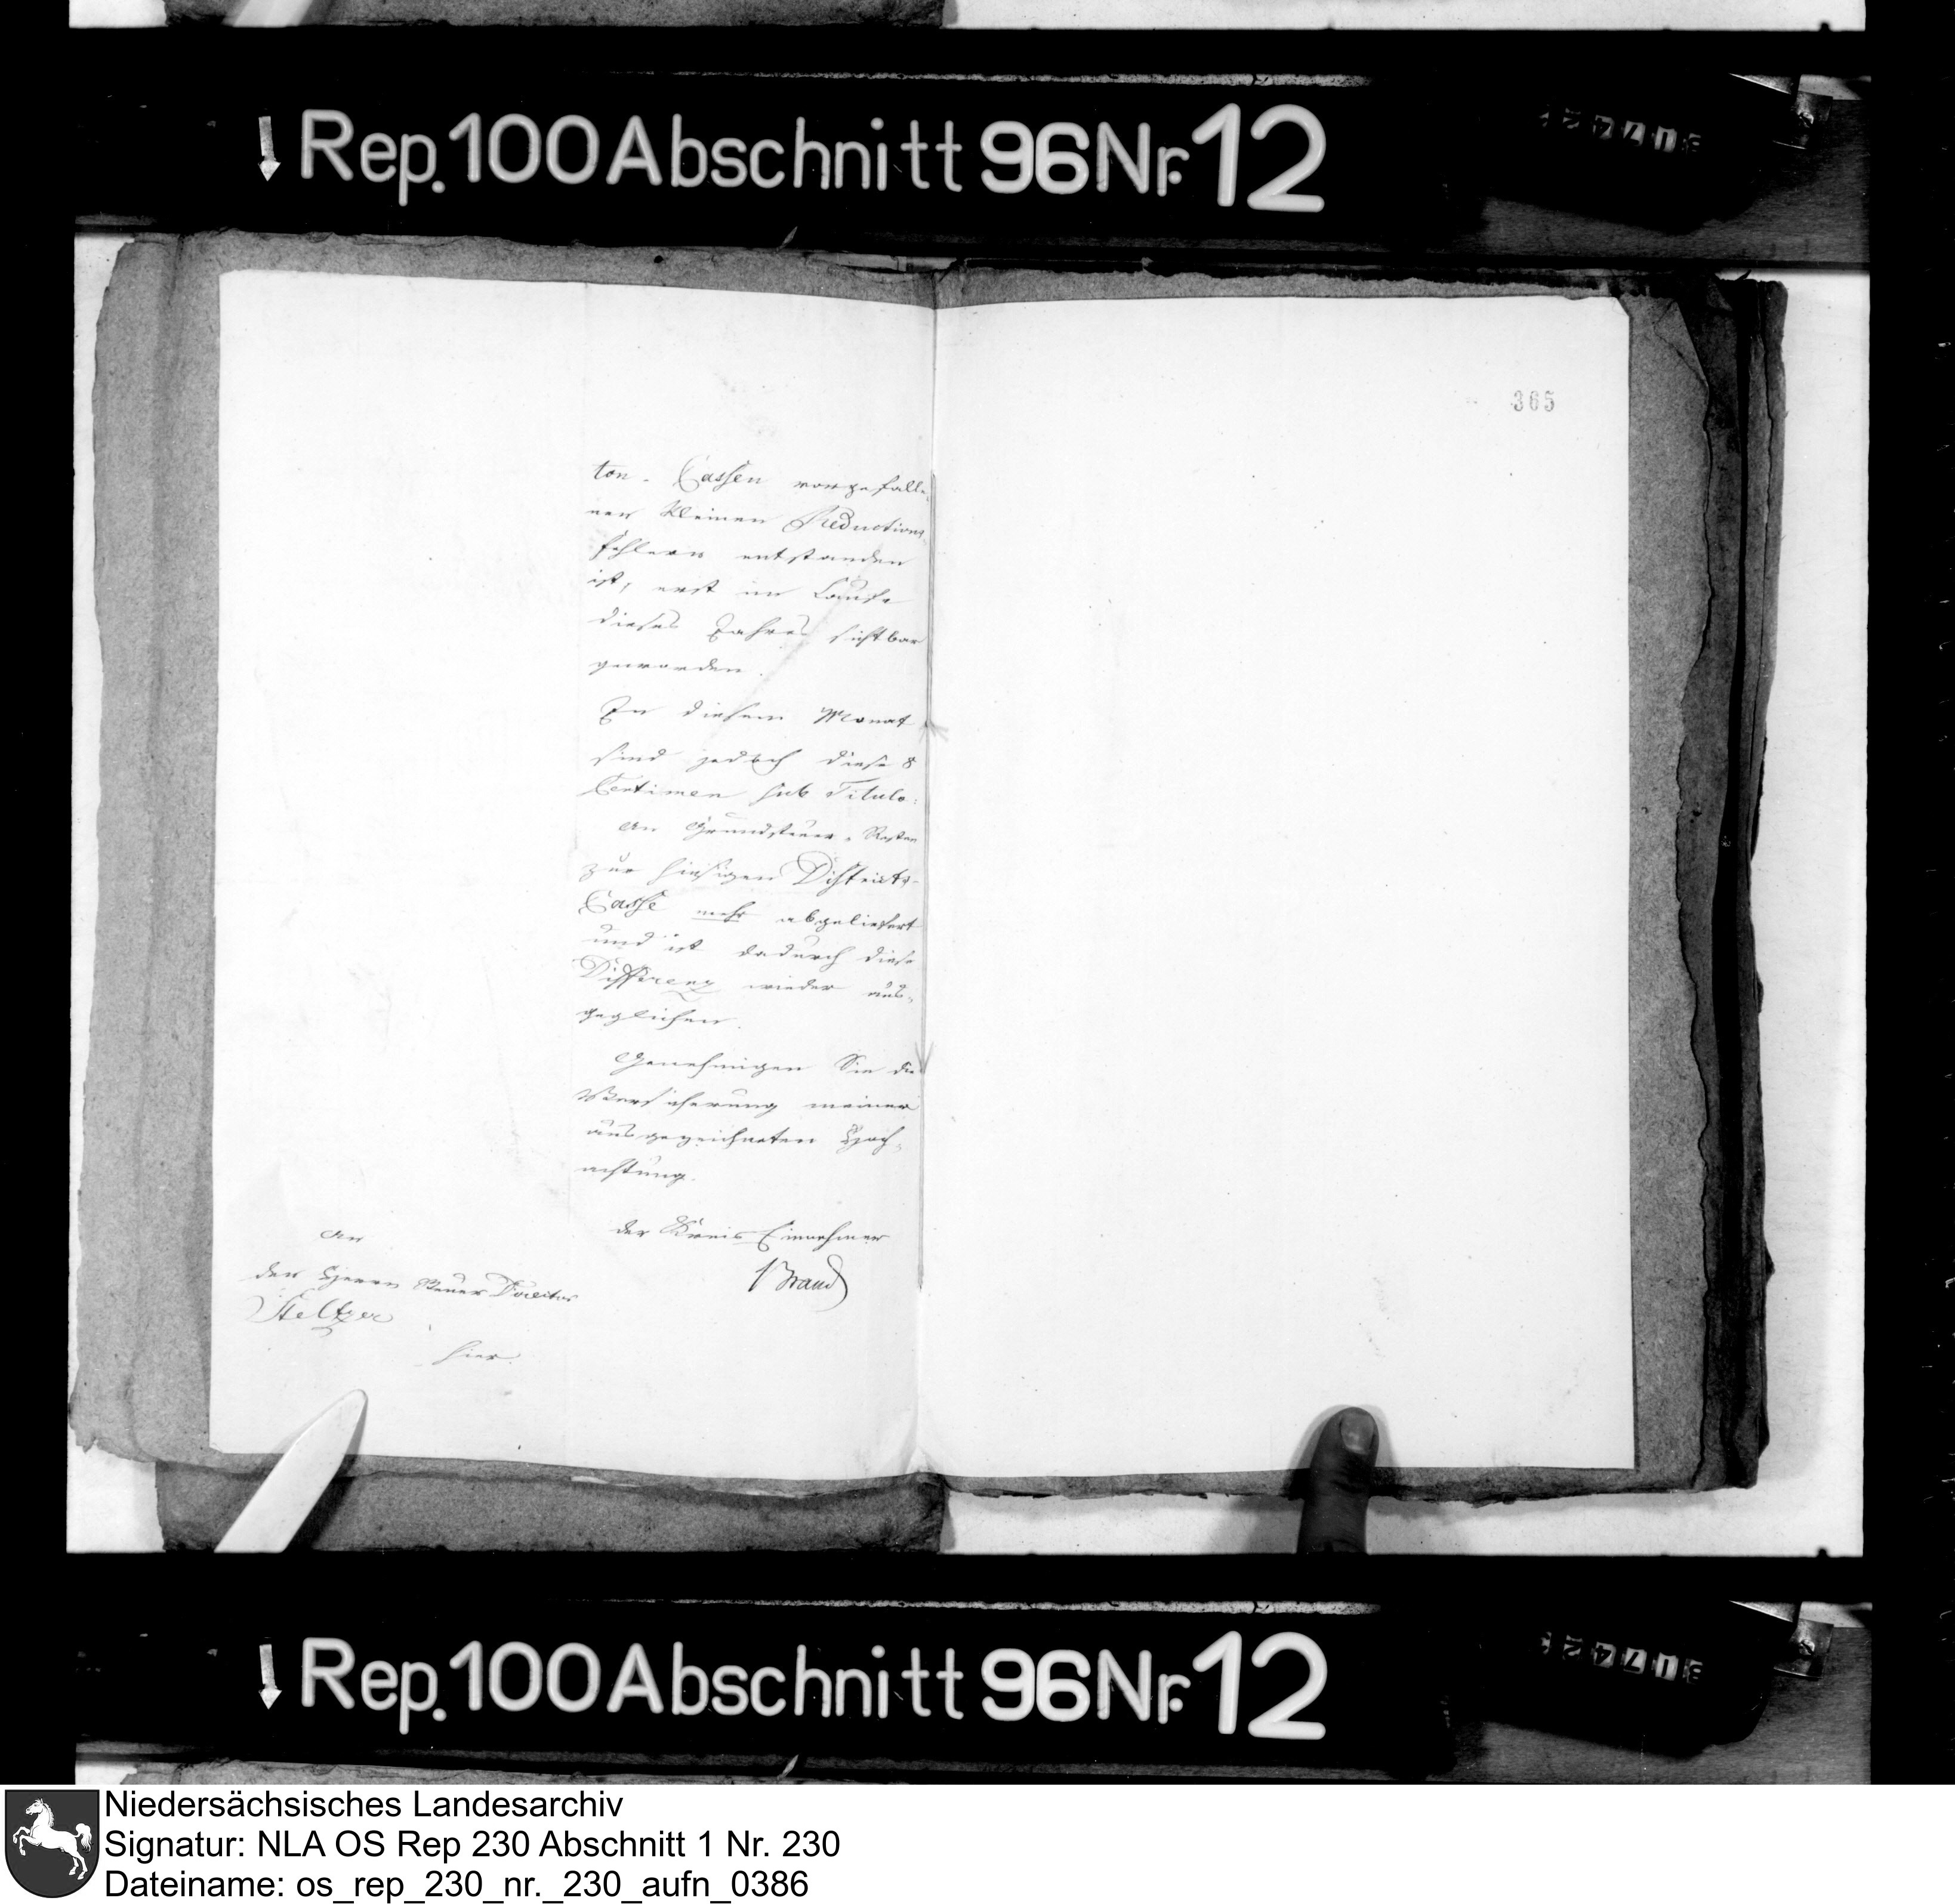 Rep. 100 Abschnitt 96 Nr. 12
365
ton-Cassen vorgefalle-
nen kleinen Reductions-
fehlern entstanden
ist, erst im Laufe
dieses Jahres sichtbar
geworden.
In diesem Monat
sind jedoch diese 8
Centimen sub Titulo:
An Grundsteuer-Resten
zur hiesigen Districts-
Casse mehr abgeliefert
und ist dadurch diese
Differenz wieder aus-
geglichen.
Genehmigen Sie die
Versicherung meiner
ausgezeichneten Hoch-
achtung.
der Kreis Einnehmer
Brand
An
den Herrn Steuer Director
Steltzer
hier.
Rep. 100 Abschnitt 96 Nr. 12
Niedersächsisches Landesarchiv
Signatur: NLA OS Rep 230 Abschnitt 1 Nr. 230
Dateiname: os_rep_230_nr._230_aufn_0386